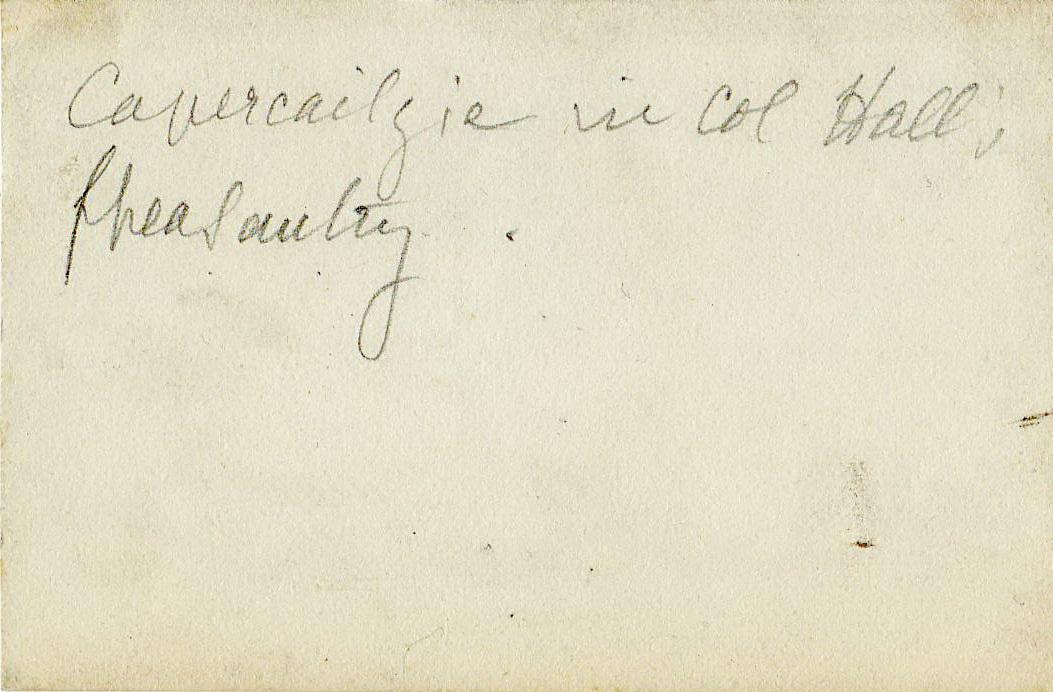 Capercailzie in Col Hall's
Pheasantry.